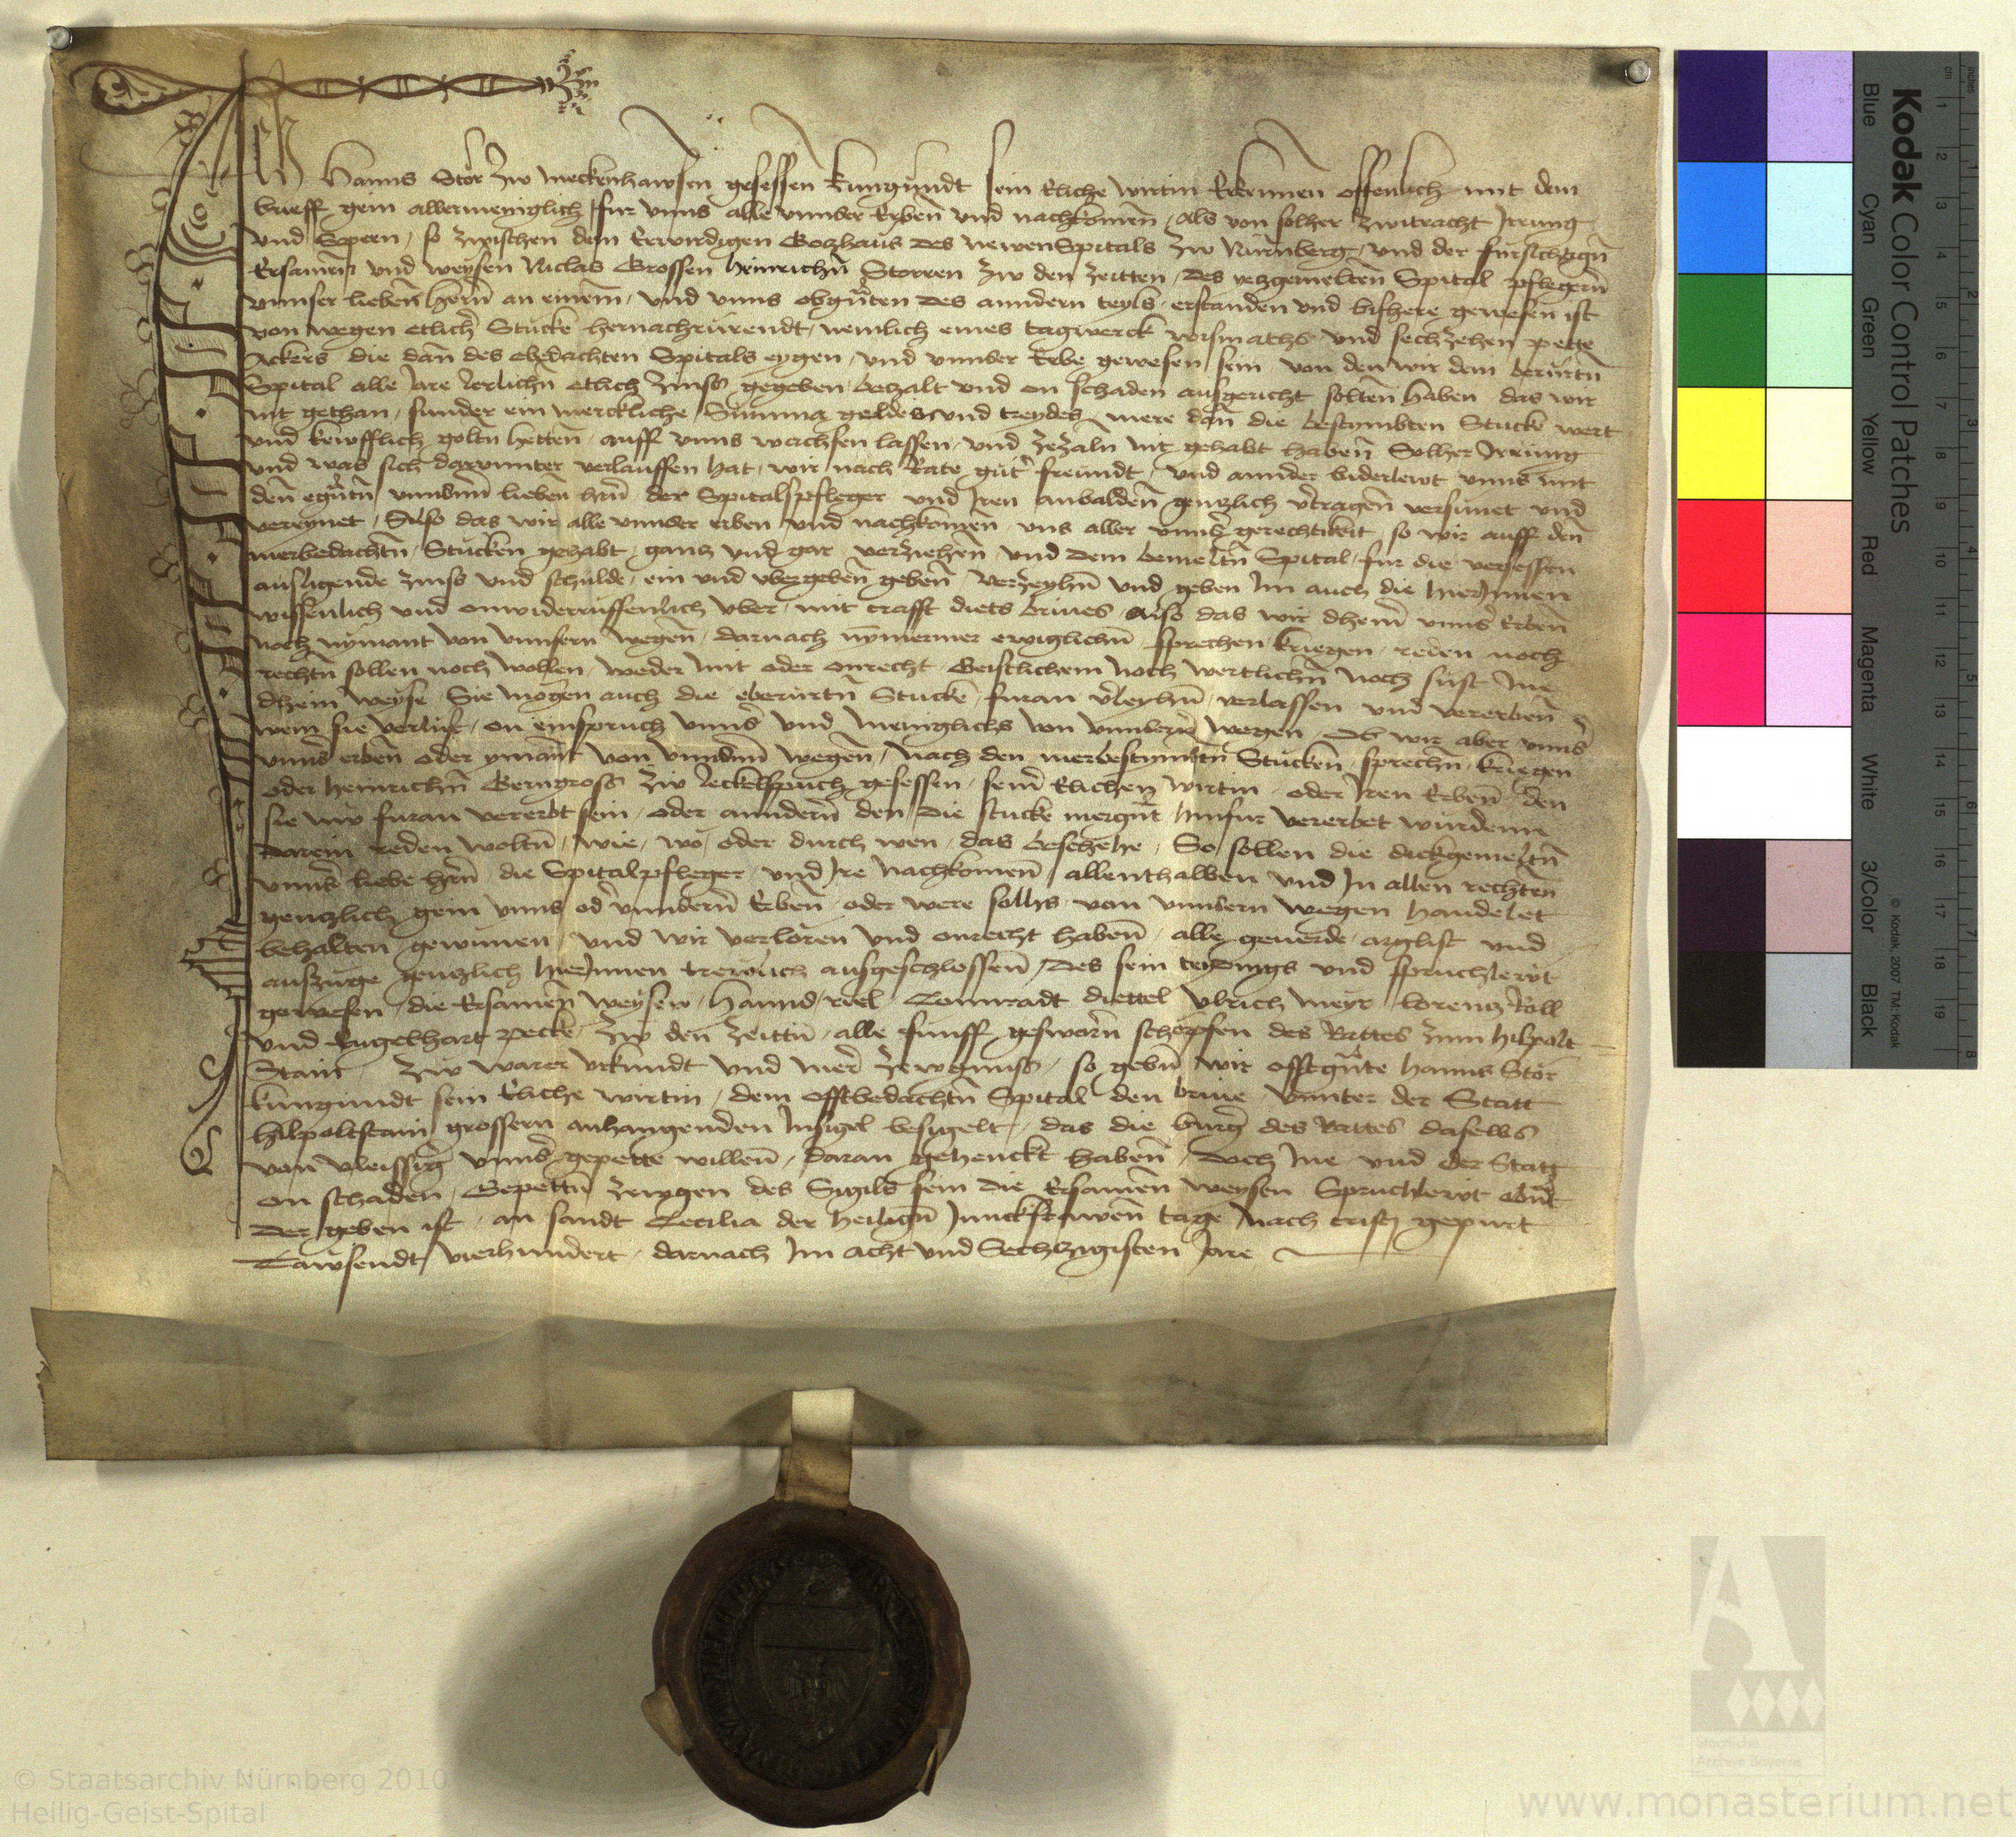 Ich Hanns Stör zw Meckenhawsen gesessen kungundt sein Eliche wirtin Bekennen offenlich mit dem
brieff gein allermeniglich fur vnns alle vnnser Erben vnd nachkomen als von solher zwitracht Irrung
vnd Spern so zwischen dem Erwirdigen Gozhaus des newen Spitals zw Nurnberg vnd der fursichtign̄
Ersamen vnd weysen Niclas Grossen heinrichn̄ Storren zw den zeitten des yezgemelten Spital pflegern̄
vnnser lieben hern̄ an einem vnd vnns obgn̄ten des anndern teyls erstanden vnd bishere gewesen ist
von wegen etlicher Stuck hernachrürendt nemlich eines tagwerck wismaths vnd sechzehen pette
Ackers die dan̄ des ebedachten Spitals eygen vnd vnnser Erbe gewesen sein von den wir dem berürtn̄
Spital alle Jare Jerlichn̄ etlich zinss gegeben bezalt vnd on schaden ausgericht solten haben das wir
nit gethan sunder ein merckliche Summa geldes vnd treydes mere dan̄ die bestymbten Stuck wert
vnd kewfflich goltn hetten auff vnns wachsen lassen vnd zezaln nit gehabt haben Solher Irrung
vnd was sich darvnnter verlauffen hat wir nach Rate gut̄ freundt vnd annder biderlewt vnns mit
den egn̄tn̄ vnnsn̄ lieben hrn̄ der Spitalspfleger vnd Iren anwalden genzlich v̄tragen versünet vnd
vereynet Also das wir alle vnnser erben vnd nachkomen vns aller vnns̄ gerechtikeit so wir auff den
merbedachtn̄ Stucken gehabt ganz vnd gar verziehen vnd dem bemeltn̄ Spital fur die versessen
ausligende zinss vnd schulde ein vnd vbergeben geben verzeyhn̄ vnd geben Im auch die hierJnnen
wissenlich vnd onwiderruffenlich vber mit crafft diets briues also das wir dhein vnns̄ Erben
noch nymant von vnnsern wegen darnach nymermer ewiglichn̄ sprechen kriegen reden noch
rechtn sollen noch wollen weder mit oder onrecht Geistlichem noch werltlichn̄ noch süst Inn
dhein weyse Sie mogen auch die eberürtn̄ Stuck furan v̄leyhn̄ verlassen vnd vererben
wem sie verlüst on einspruch vnns̄ vnd meniglichs von vnnsern wegen Ob wir aber vnns̄
vnns̄ erben oder ymant von vnnsn̄ wegen nach den merbestymbtn̄ Stucken sprechn̄ kriegen
oder heinrichn̄ Berngross zw gesessen sein̄ Elichen wirtin oder Iren Erben den
sie nw furan vererbt sein oder anndern̄ den die stuck mergn̄t hinfur vererbet würdenn
darein reden woltn̄ wie wo oder durch wen das beschehe So sollen die dickgemeltn̄
vnns̄ liebe hrn̄ die Spitalpfleger vnd Ire nachkomen̄ allenthalben vnd In allen rechten
genczlich gein vnns od̄ vnnsern̄ Erben oder were sollhs von vnnsern wegen handelet
behalten gewunnen vnd wir verloren vnd onrecht haben alle geuerde arglist vnd
auszuge genczlich hierJnnen trewlich ausgeschlossen Des sein teydings vnd spruchlewt
gewesen die Ersamen weysen Hanns Conradt diettel vlrich meyr lorentz
vnd Engelhart peck zw den zeittn̄ alle funff gesworn̄ schöpfen des Rattes zum hilpolt
Stain Zw warer vrkundt vnd mer̄ zewgnuss so gebn̄ wir offtgn̄te Hanns Stör
kungundt sein Eliche wirtin dem offtbedachtn̄ Spital den briue vnnter der Statt
hilpoltstain grossern anhangenden Insigel besigelt das die burḡ des Rattes daselbs
von vleissiḡ vnns̄ gepette willen daran gehenckt haben Doch Ine vnd der Statt
on schaden Gepettn̄ zewgen des Sigils sein die Ersamen weysen Spruchlewt obn̄t
Der geben ist an sandt Cecilia der heilign̄ Junckfrawen tage Nach cristj gepurt
Tawsendt vierhundert darnach Im acht vnd Sechzigisten Jare
Kodak Color Control Patches
Blue Cyan Green Yellow Red Magenta White 3/Color Black
© Kodak, 2007 TM: Kodak
inches
cm
1 2 3 4 5 6 7 8 9 10 11 12 13 14 15 16 17 18 19
1 2 3 4 5 6 7 8
© Staatsarchiv Nürnberg 2010
Heilig-Geist-Spital
Staatliche
Archive Bayerns
www.monasterium.net